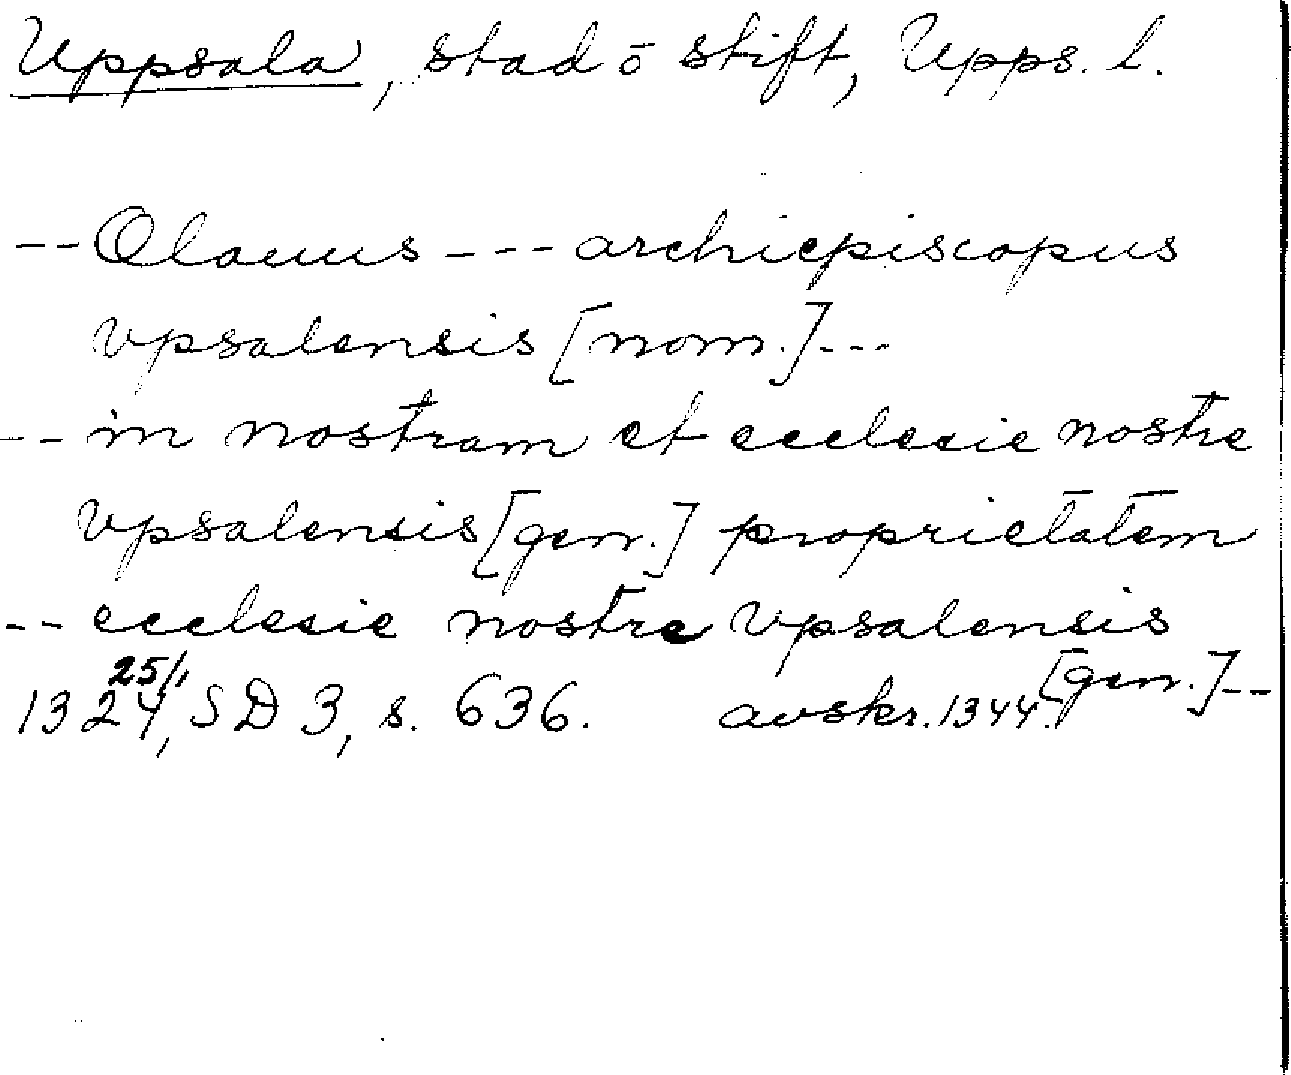 Uppsala, stad ō stift, Upps. l.
-- Olauus --- archiepiscopus
vpsalensis [nom.] ---
-- in nostram et ecclesie nostre
vpsalensis [gen.] proprietatem
-- ecclesie nostre vpsalensis
[gen.] --
1324 25/1, SD 3, s. 636. avskr. 1344.